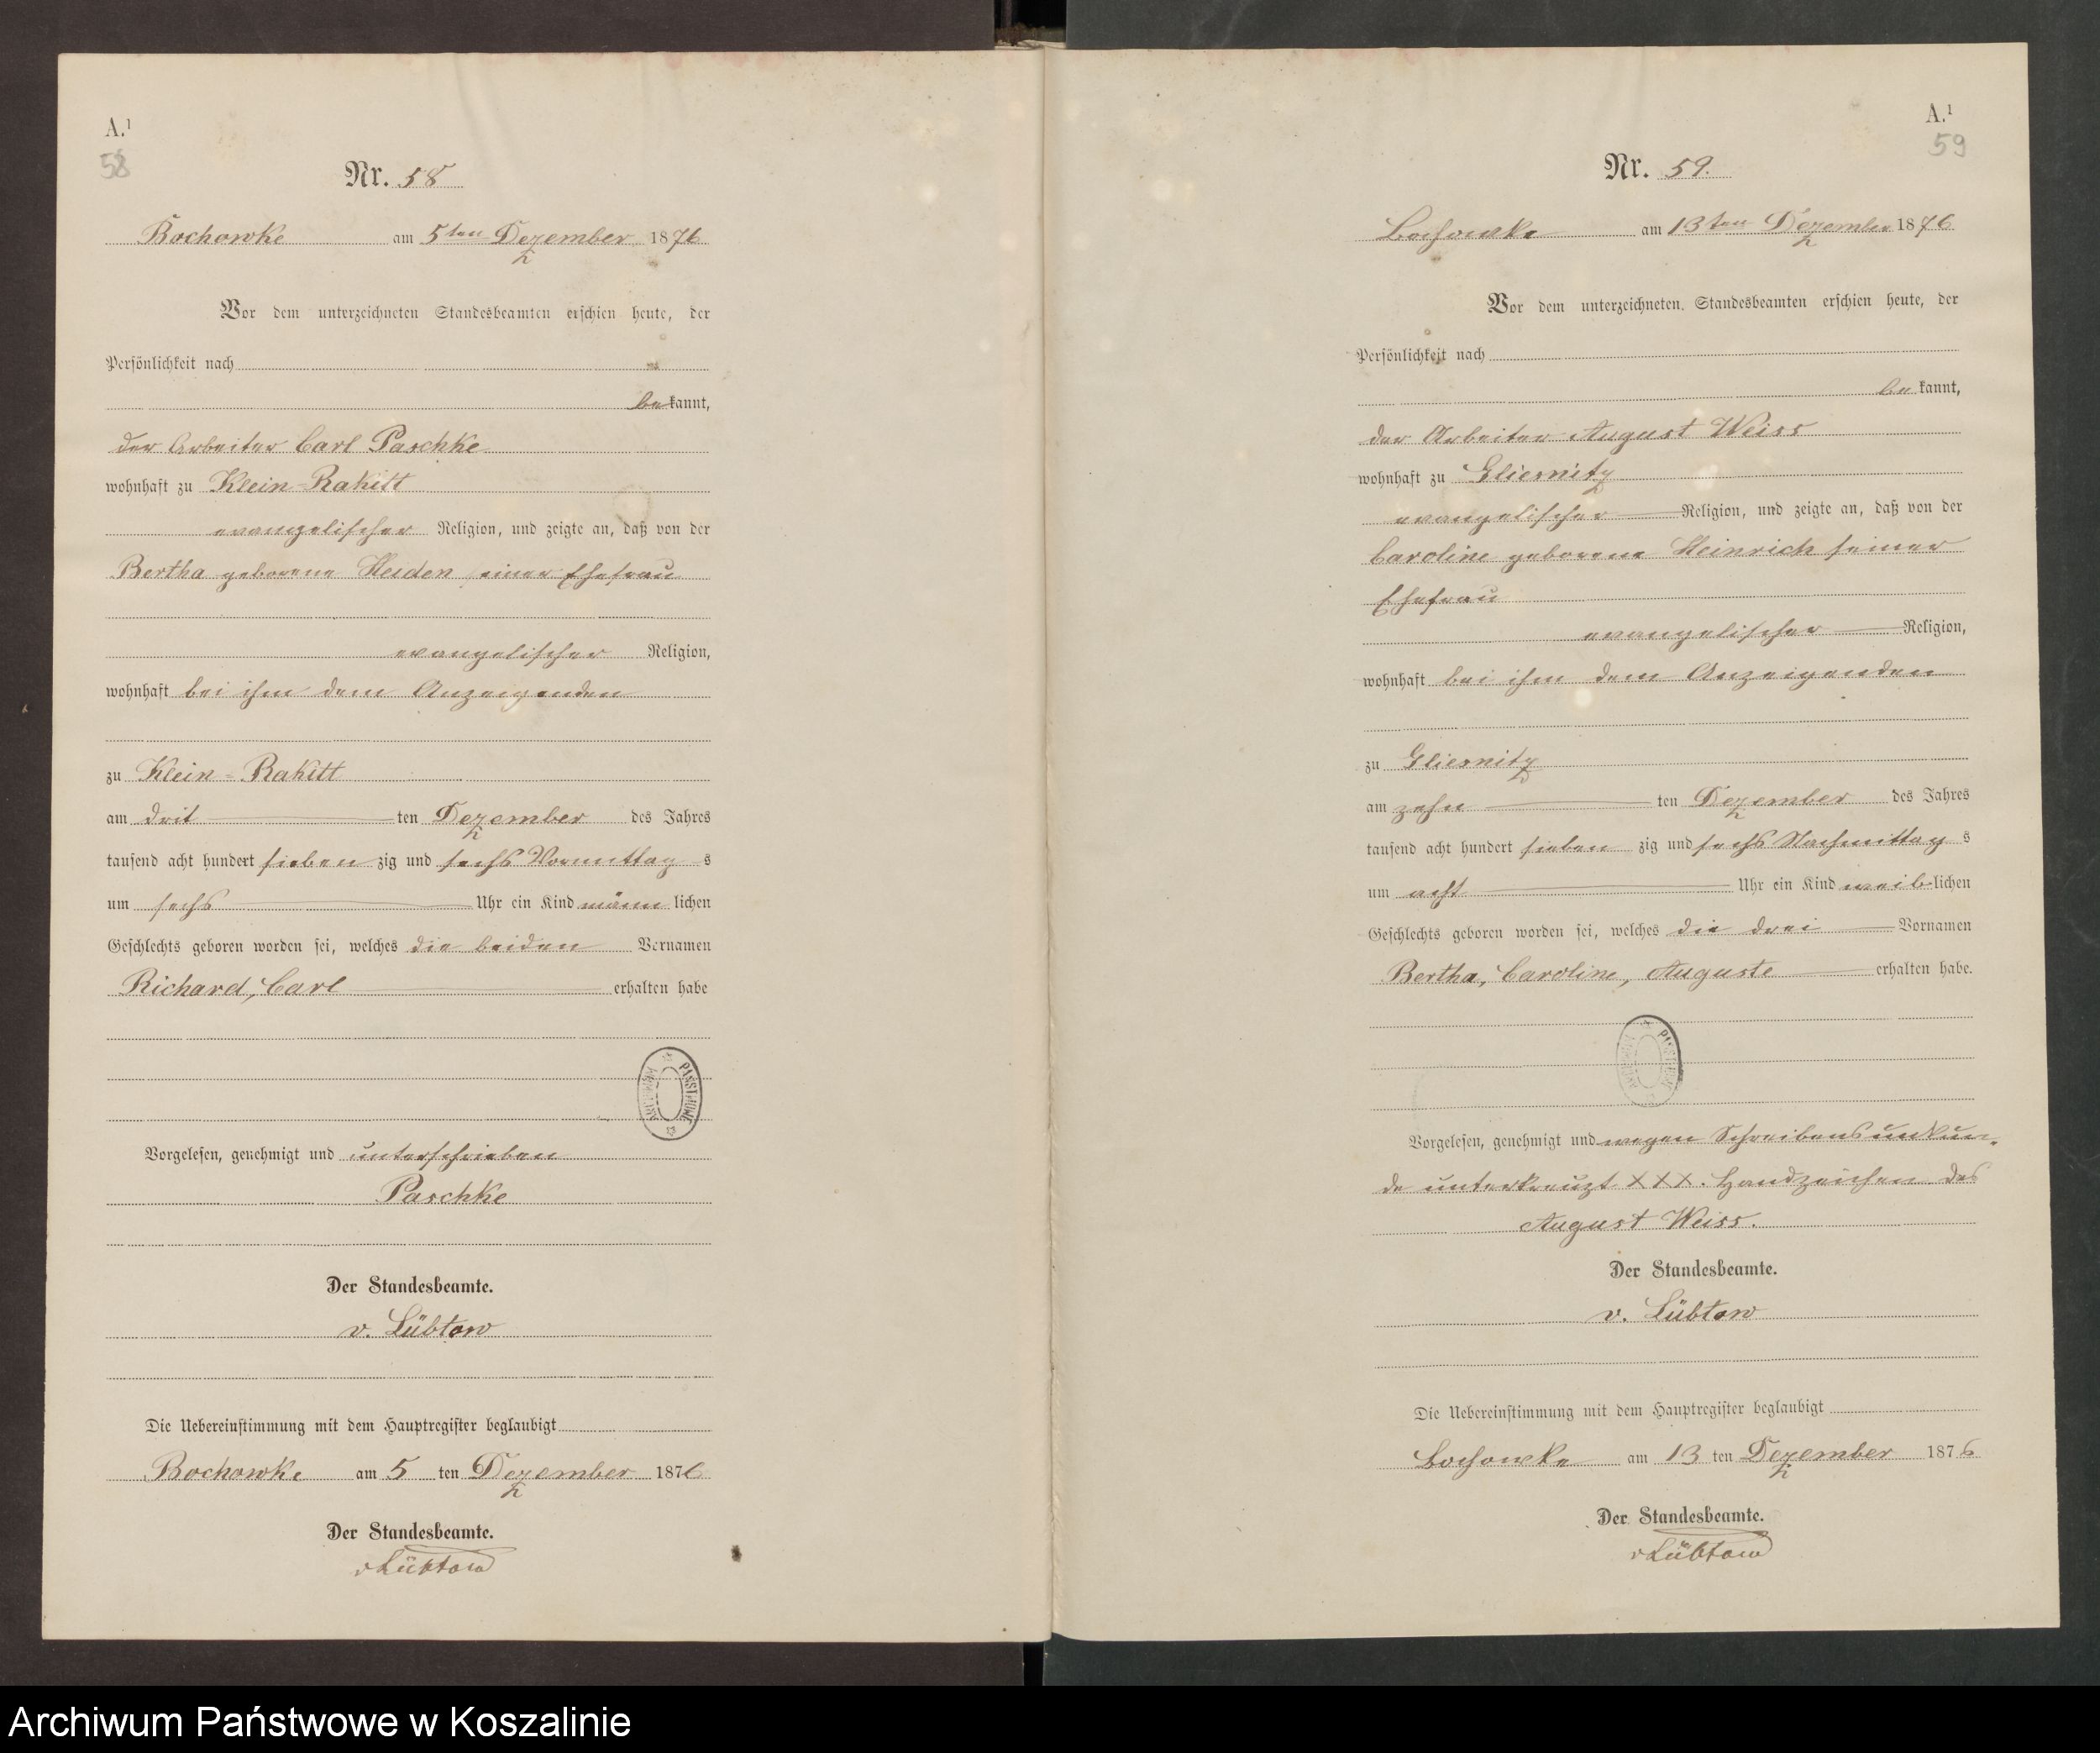 A.¹
58
Nr. 58
Bochowke am 5ten Dezember 1876
Vor dem unterzeichneten Standesbeamten erschien heute, der
Persönlichkeit nach
bekannt,
der Arbeiter Carl Paschke
wohnhaft zu Klein-Rakitt
evangelischer Religion, und zeigte an, daß von der
Bertha geborene Heiden seiner Ehefrau
evangelischer Religion,
wohnhaft bei ihm dem Anzeigenden
zu Klein-Rakitt
am drit ten Dezember des Jahres
tausend acht hundert sieben zig und sechs Vormittag s
um sechs Uhr ein Kind männ lichen
Geschlechts geboren worden sei, welches die beiden Vornamen
Richard, Carl erhalten habe
PAŃSTWOWE ARCHIWUM
Vorgelesen, genehmigt und unterschrieben
Paschke
Der Standesbeamte.
v. Lübtow
Die Uebereinstimmung mit dem Hauptregister beglaubigt
Bochowke am 5 ten Dezember 1876
Der Standesbeamte.
vLübtow
A.¹
59
Nr. 59.
Bochowke am 13ten Dezember 1876
Vor dem unterzeichneten Standesbeamten erschien heute, der
Persönlichkeit nach
be kannt,
der Arbeiter August Weiss
wohnhaft zu Gliesnitz
evangelischer Religion, und zeigte an, daß von der
Caroline geborene Heinrich seiner
Ehefrau
evangelischer Religion,
wohnhaft bei ihm dem Anzeigenden
zu Gliesnitz
am zehn ten Dezember des Jahres
tausend acht hundert sieben zig und sechs Nachmittag s
um acht Uhr ein Kind weib lichen
Geschlechts geboren worden sei, welches die drei Vornamen
Bertha, Caroline, Auguste erhalten habe.
PAŃSTWOWE ARCHIWUM
Vorgelesen, genehmigt und wegen Schreibensunkun-
de unterkreuzt XXX. Handzeichen des
August Weiss.
Der Standesbeamte.
v. Lübtow
Die Uebereinstimmung mit dem Hauptregister beglaubigt
Bochowke am 13 ten Dezember 1876
Der Standesbeamte.
vLübtow
Archiwum Państwowe w Koszalinie